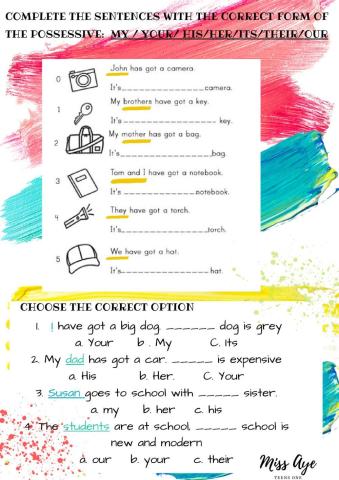 COMPLETE THE SENTENCES WITH THE CORRECT FORM OF
THE POSSESSIVE: MY / YOUR/ HIS/HER/ITS/THEIR/OUR
0 John has got a camera.
It's_______________camera.
1 My brothers have got a key.
It's_______________ key.
2 My mother has got a bag.
It's_______________bag.
3 Tom and I have got a notebook.
It's _______________notebook.
4 They have got a torch.
It's_______________torch.
5 We have got a hat.
It's_______________ hat.
CHOOSE THE CORRECT OPTION
1. I have got a big dog. ______ dog is grey
a. Your b . My C. Its
2. My dad has got a car. _____ is expensive
a. His b. Her. C. Your
3. Susan goes to school with _____ sister.
a. my b. her c. his
4. The students are at school, _____ school is
new and modern
a. our b. your c. their
Miss Aye
TEENS ONE